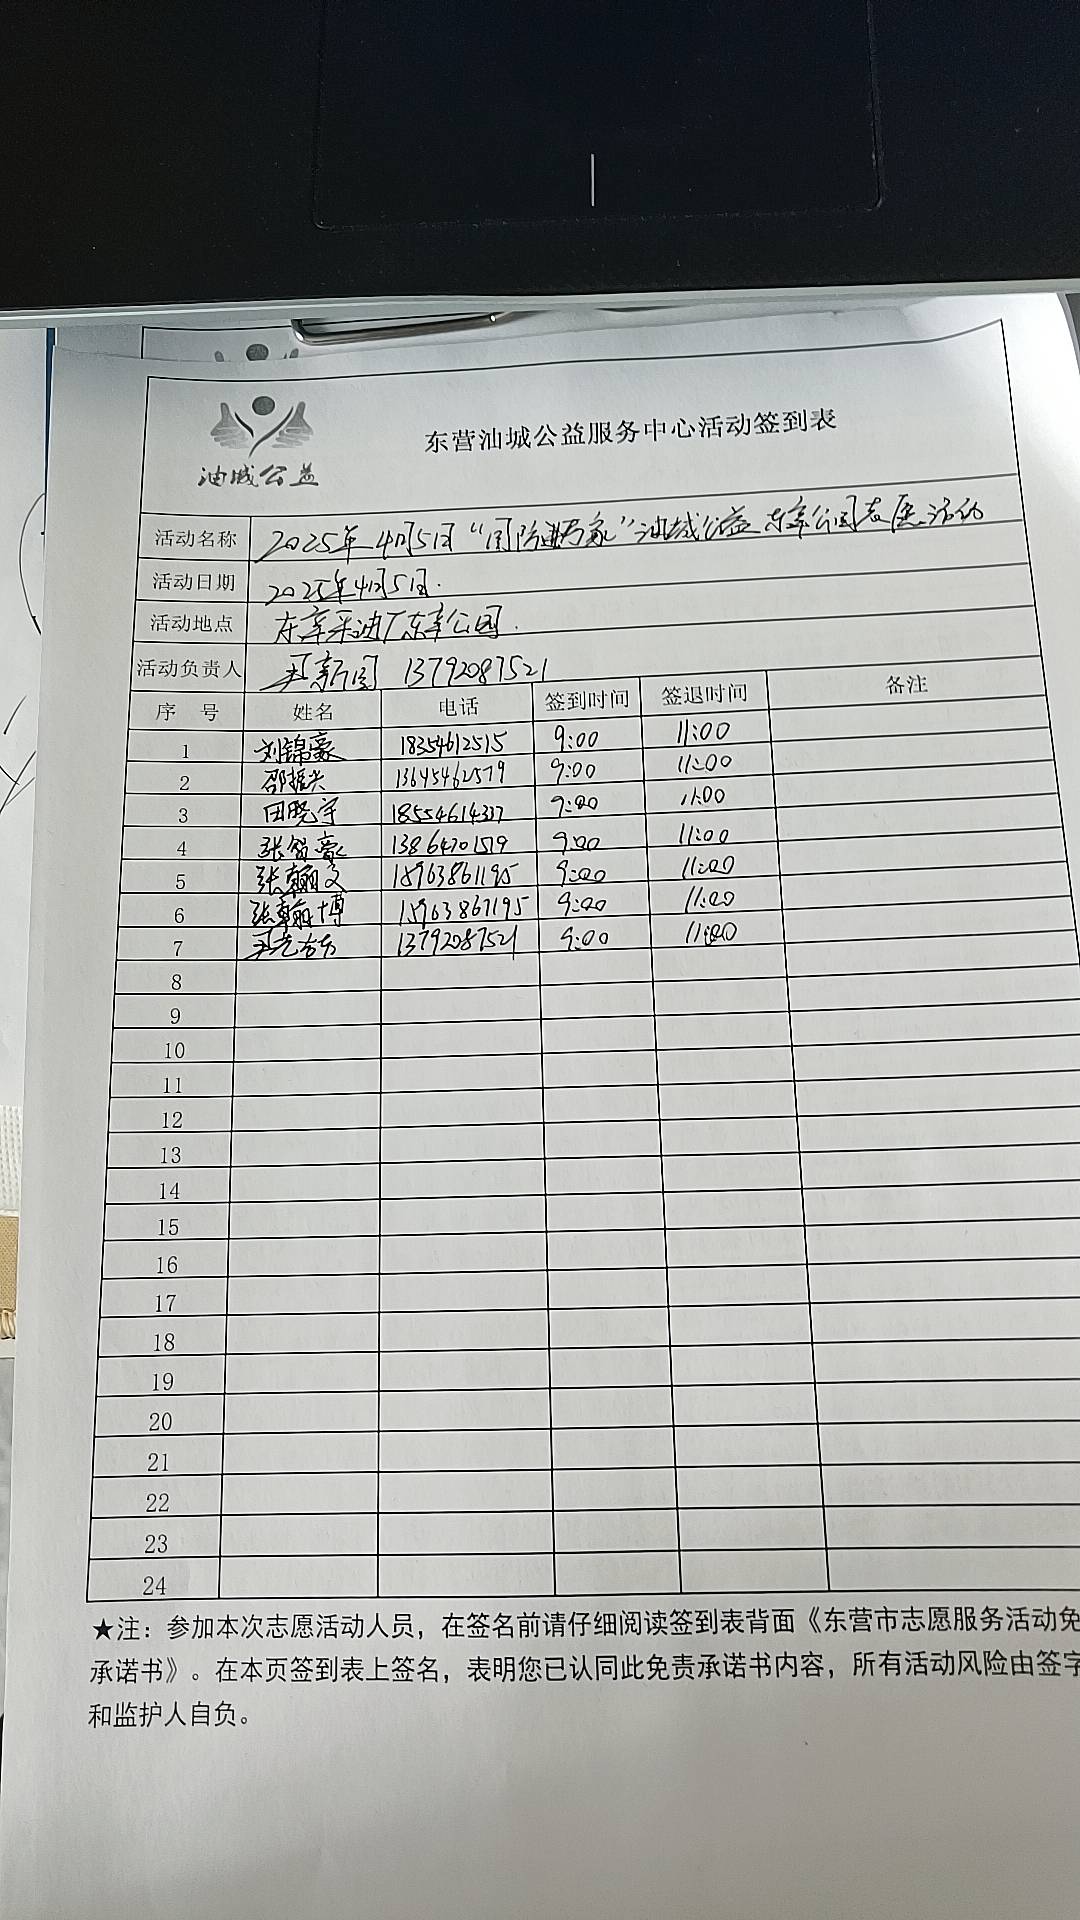 油城公益
东营油城公益服务中心活动签到表
活动名称 2025年4月5日“国防进万家”油城公益东辛公园志愿活动
活动日期 2025年4月5日.
活动地点 东辛采油厂东辛公园.
活动负责人 新国 13792087521
序 号 姓名 电话 签到时间 签退时间 备注
1 刘锦豪 18354612515 9:00 11:00
2 邵振兴 13645462579 9:00 11:00
3 田晓宇 18554614337 9:00 11:00
4 张铭豪 13864701579 9:00 11:00
5 张翰文 15963861195 9:00 11:00
6 张翰博 15963861195 9:00 11:00
7 13792087521 9:00 11:00
8
9
10
11
12
13
14
15
16
17
18
19
20
21
22
23
24
★注：参加本次志愿活动人员，在签名前请仔细阅读签到表背面《东营市志愿服务活动免
承诺书》。在本页签到表上签名，表明您已认同此免责承诺书内容，所有活动风险由签字
和监护人自负。